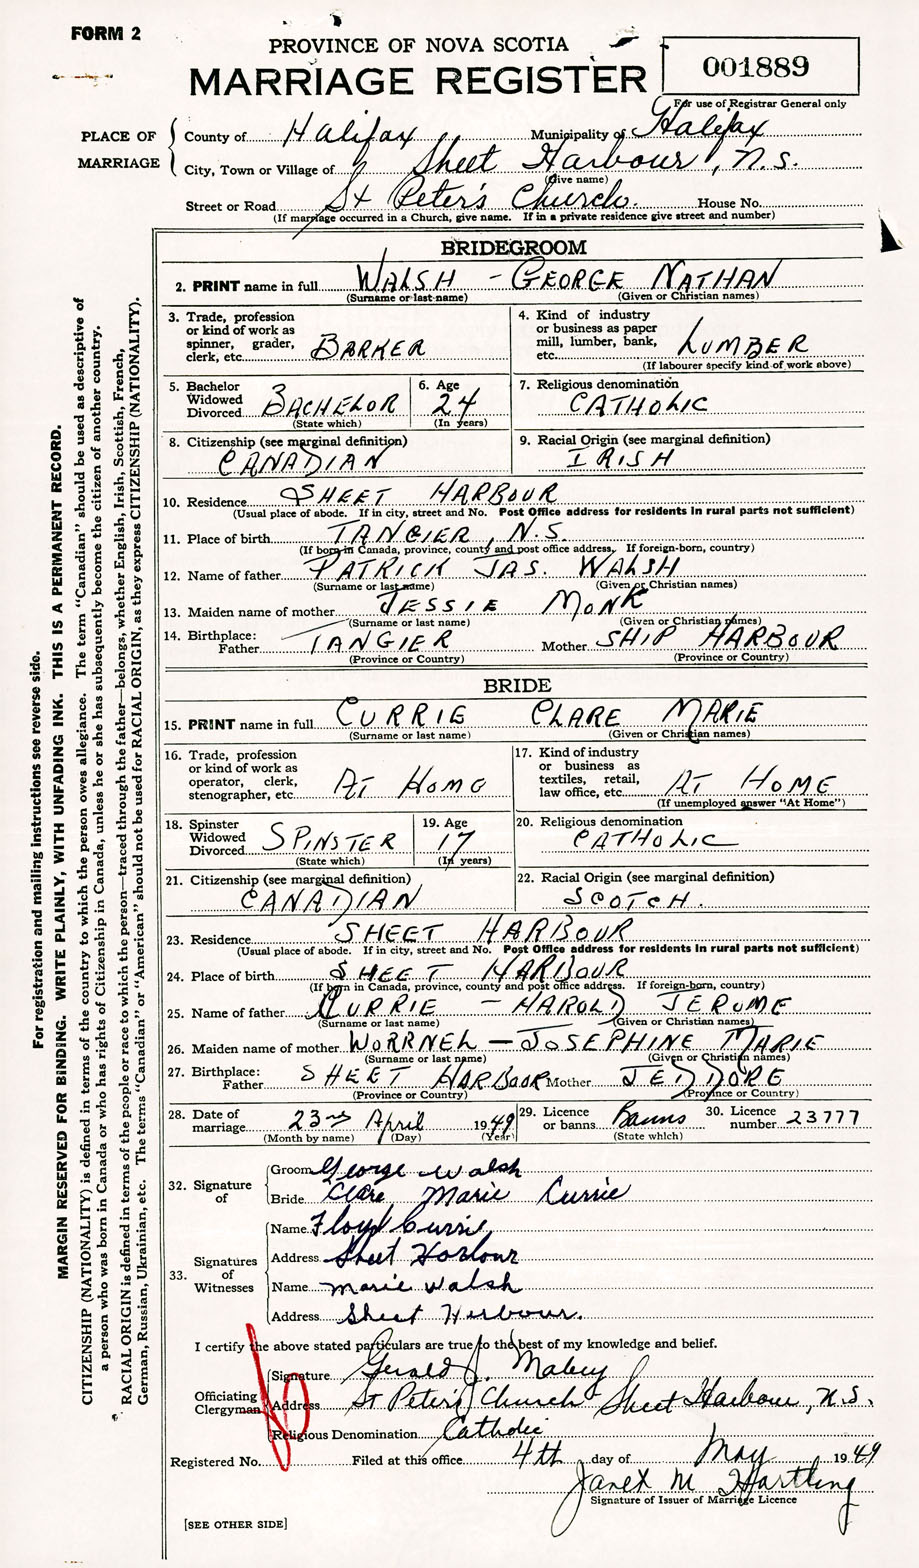 FORM 2
PROVINCE OF NOVA SCOTIA
MARRIAGE REGISTER
001889
For use of Registrar General only
PLACE OF MARRIAGE
County of Halifax Municipality of Halifax
City, Town or Village of Sheet Harbour, N.S.
(Give name)
Street or Road St Peter's Church. House No.
(If marriage occurred in a Church, give name. If in a private residence give street and number)
BRIDEGROOM
2. PRINT name in full WALSH - GEORGE NATHAN
(Surname or last name) (Given or Christian names)
3. Trade, profession or kind of work as spinner, grader, clerk, etc. BARKER
4. Kind of industry or business as paper mill, lumber, bank, etc. LUMBER
(If labourer specify kind of work above)
5. Bachelor Widowed Divorced BACHELOR
(State which)
6. Age 24
(In years)
7. Religious denomination CATHOLIC
8. Citizenship (see marginal definition) CANADIAN
9. Racial Origin (see marginal definition) IRISH
10. Residence SHEET HARBOUR
(Usual place of abode. If in city, street and No. Post Office address for residents in rural parts not sufficient)
11. Place of birth TANGIER, N.S.
(If born in Canada, province, county and post office address. If foreign-born, country)
12. Name of father PATRICK JAS. WALSH
(Surname or last name) (Given or Christian names)
13. Maiden name of mother JESSIE MONK
(Surname or last name) (Given or Christian names)
14. Birthplace: Father TANGIER Mother SHIP HARBOUR
(Province or Country) (Province or Country)
BRIDE
15. PRINT name in full CURRIE CLARE MARIE
(Surname or last name) (Given or Christian names)
16. Trade, profession or kind of work as operator, clerk, stenographer, etc. AT HOME
17. Kind of industry or business as textiles, retail, law office, etc. AT HOME
(If unemployed answer "At Home")
18. Spinster Widowed Divorced SPINSTER
(State which)
19. Age 17
(In years)
20. Religious denomination CATHOLIC
21. Citizenship (see marginal definition) CANADIAN
22. Racial Origin (see marginal definition) SCOTCH.
23. Residence SHEET HARBOUR
(Usual place of abode. If in city, street and No. Post Office address for residents in rural parts not sufficient)
24. Place of birth SHEET HARBOUR
(If born in Canada, province, county and post office address. If foreign-born, country)
25. Name of father CURRIE - HAROLD JEROME
(Surname or last name) (Given or Christian names)
26. Maiden name of mother WORRNEL - JOSEPHINE MARIE
(Surname or last name) (Given or Christian names)
27. Birthplace: Father SHEET HARBOUR Mother JEDDORE
(Province or Country) (Province or Country)
28. Date of marriage 23rd April 1949
(Month by name) (Day) (Year)
29. Licence or banns Banns
(State which)
30. Licence number 23777
32. Signature of
Groom George Walsh
Bride Clare Marie Currie
33. Signatures of Witnesses
Name Floyd Currie
Address Sheet Harbour
Name Marie Walsh
Address Sheet Harbour.
I certify the above stated particulars are true to the best of my knowledge and belief.
Officiating Clergyman
Signature Gerald J.
Address St Peter's Church Sheet Harbour, N.S.
Religious Denomination Catholic
Registered No. Filed at this office 4th day of May 1949
Janet M Hartling
Signature of Issuer of Marriage Licence
[SEE OTHER SIDE]
For registration and mailing instructions see reverse side.
MARGIN RESERVED FOR BINDING. WRITE PLAINLY, WITH UNFADING INK. THIS IS A PERMANENT RECORD.
CITIZENSHIP (NATIONALITY) is defined in terms of the country to which the person owes allegiance. The term "Canadian" should be used as descriptive of
a person who was born in Canada or who has rights of Citizenship in Canada, unless he or she has subsequently become the citizen of another country.
RACIAL ORIGIN is defined in terms of the people or race to which the person—traced through the father—belongs, whether English, Irish, Scottish, French,
German, Russian, Ukrainian, etc. The terms "Canadian" or "American" should not be used for RACIAL ORIGIN, as they express CITIZENSHIP (NATIONALITY).